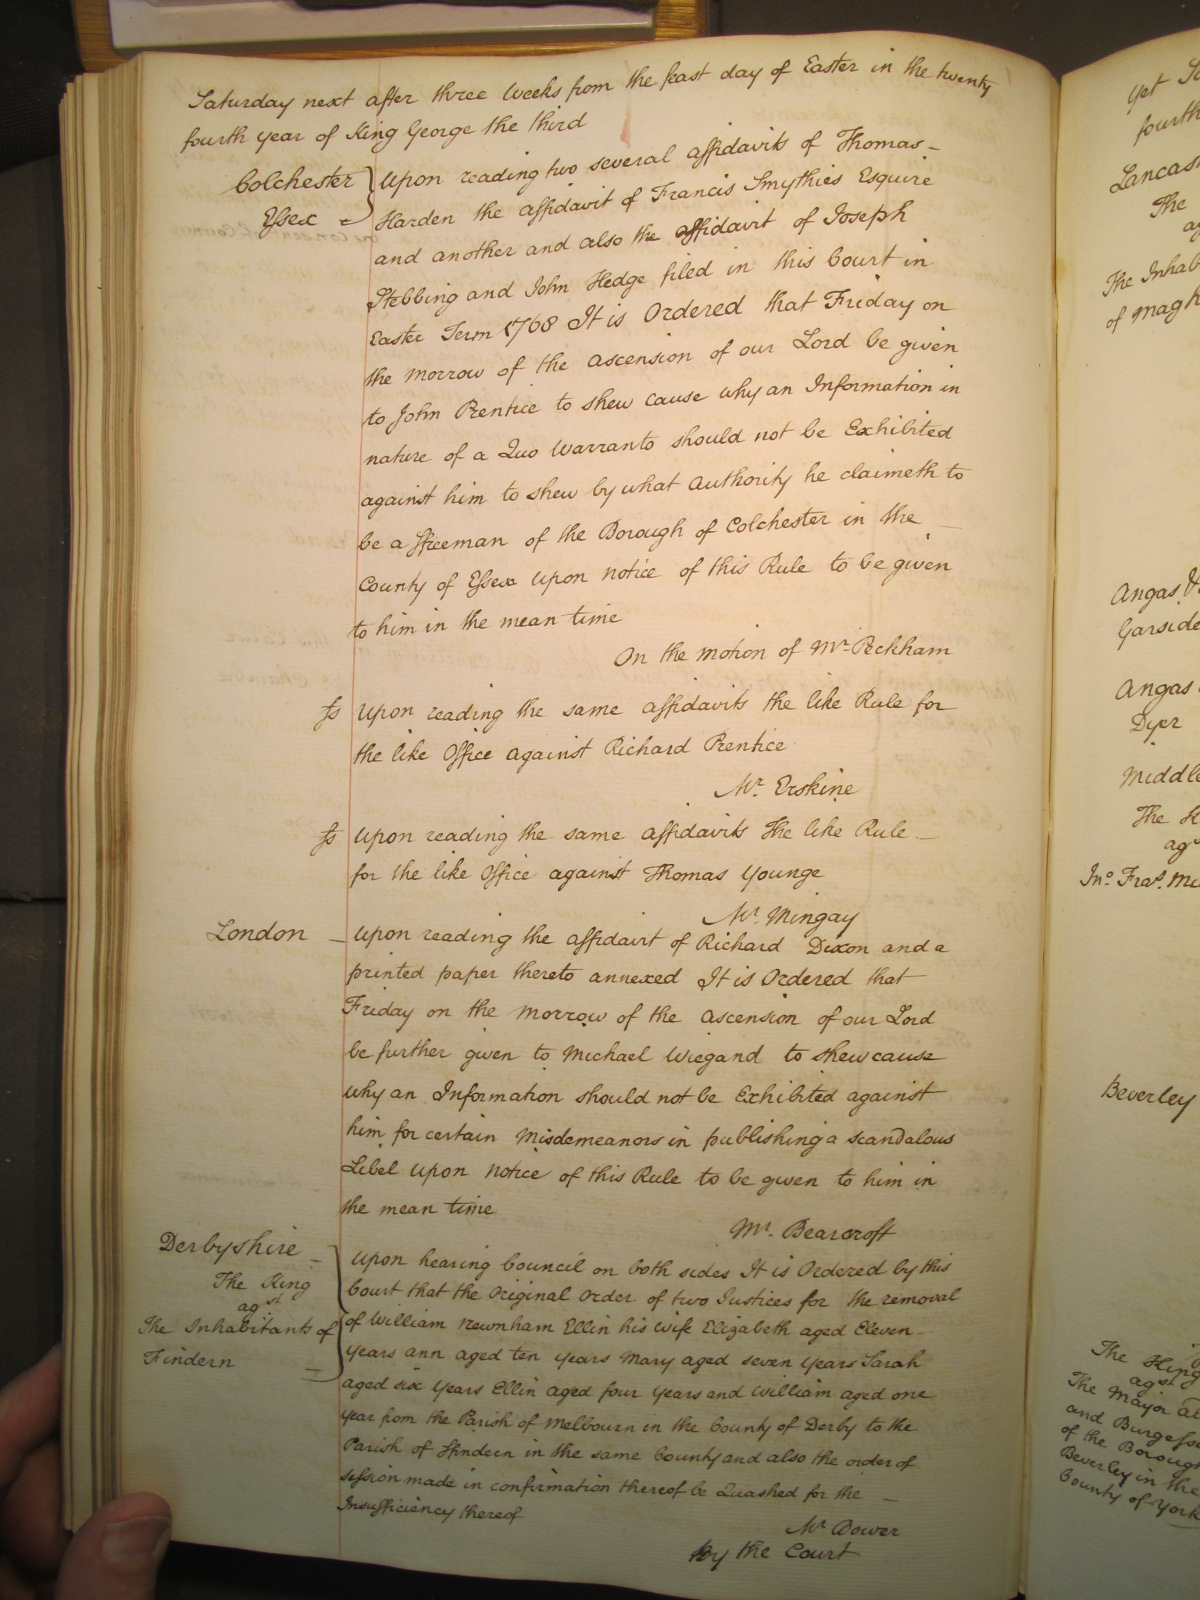 Saturday next after three weeks from the feast day of Easter in the twenty
fourth year of King George the third
Colchester
Essex
Upon reading two several affidavits of Thomas
Harden the affidavit of Francis Smythies Esquire
and another and also the affidavit of Joseph
Stebbing and John Hedge filed in this Court in
Easter Term 1768 It is Ordered that Friday on
the morrow of the ascension of our Lord be given
to John Prentice to shew cause why an Information in
nature of a Quo Warranto should not be Exhibited
against him to shew by what authority he claimeth to
be a ffreeman of the Borough of Colchester in the
County of Essex upon notice of this Rule to be given
to him in the mean time
On the motion of Mr. Peckham
Upon reading the same affidavits the like Rule for
the like Office against Richard Prentice
Mr. Erskine
Upon reading the same affidavits the like Rule
for the like Office against Thomas Younge
Mr. Mingay
London
Upon reading the affidavit of Richard Dixon and a
printed paper thereto annexed It is Ordered that
Friday on the morrow of the ascension of our Lord
be further given to Michael Wiegand to shew cause
why an Information should not be Exhibited against
him for certain Misdemeanors in publishing a scandalous
Libel upon notice of this Rule to be given to him in
the mean time
Mr. Bearcroft
Derbyshire
The King
agst
The Inhabitants of
Findern
Upon hearing Council on both sides It is Ordered by this
Court that the Original Order of two Justices for the removal
of William Newnham Ellin his wife Elizabeth aged Eleven
years ann aged ten years Mary aged seven years Sarah
aged six years Ellin aged four years and William aged one
year from the Parish of Melbourn in the County of Derby to the
Parish of ffindern in the same County and also the order of
session made in confirmation thereof be Quashed for the
Insufficiency thereof
Mr Bower
By the Court
yet
fourth
Lancas
The
The Inhab
of magh
Angas &
Garside
Angas
Dyer
Middle
The
agt
Jno. Fras. Mi
Beverley
The King
agst
The Mayor al
and Burgess
of the Borough
Beverley in the
County of York